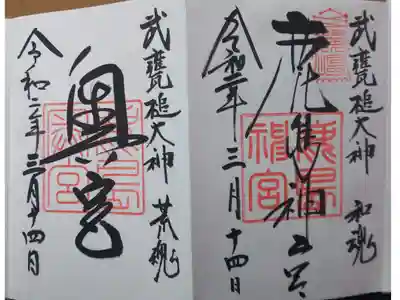 武甕槌大神 和魂
鹿島神宮
令和二年三月十四日
鹿島神宮
武甕槌大神 荒魂
奥宮
令和二年三月十四日